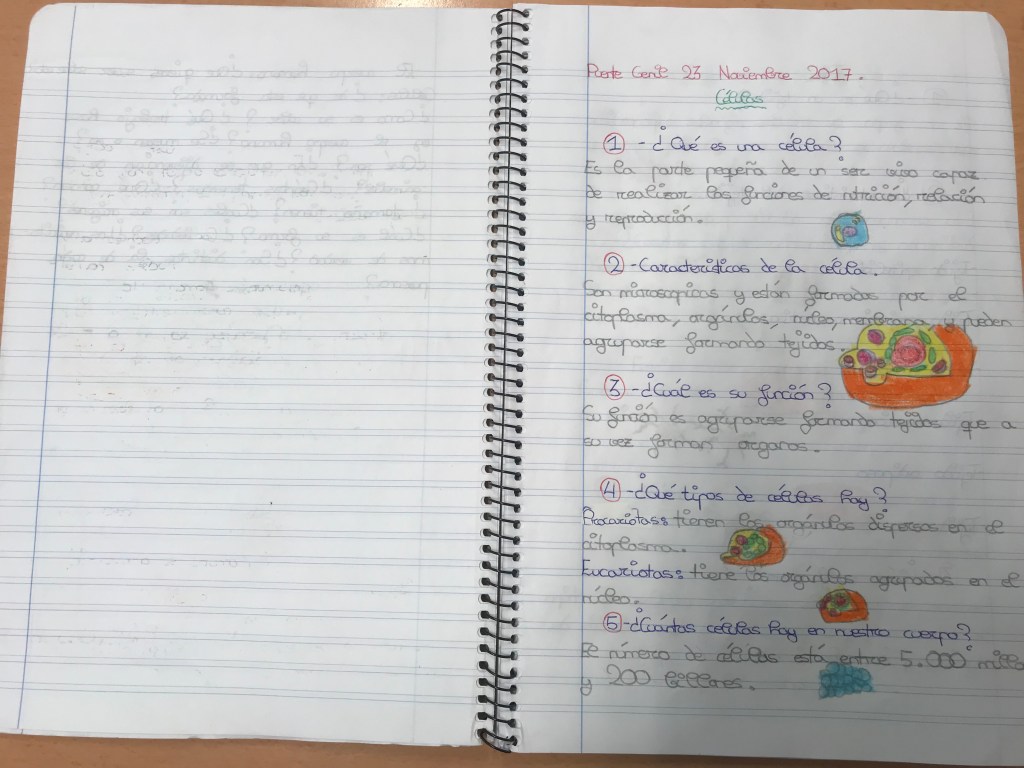 Puente Genil 23 Noviembre 2017.
Células
1 - ¿Qué es una célula?
Es la parte pequeña de un ser vivo capaz
de realizar las funciones de nutrición, relación
y reproducción.
2 - Características de la célula.
Son microscopicas y están formadas por el
citoplasma, orgánulos, núcleo, membrana, y pueden
agruparse formando tejidos.
3 - ¿Cuál es su función?
Su función es agruparse formando tejidos que a
su vez forman organos.
4 - ¿Qué tipos de células hay?
Procariotas: tienen los orgánulos dispersos en el
citoplasma.
Eucariotas: tiene los orgánulos agrupados en el
núcleo.
5 - ¿Cuántas células hay en nuestro cuerpo?
El número de células está entre 5.000
y 200 billones.